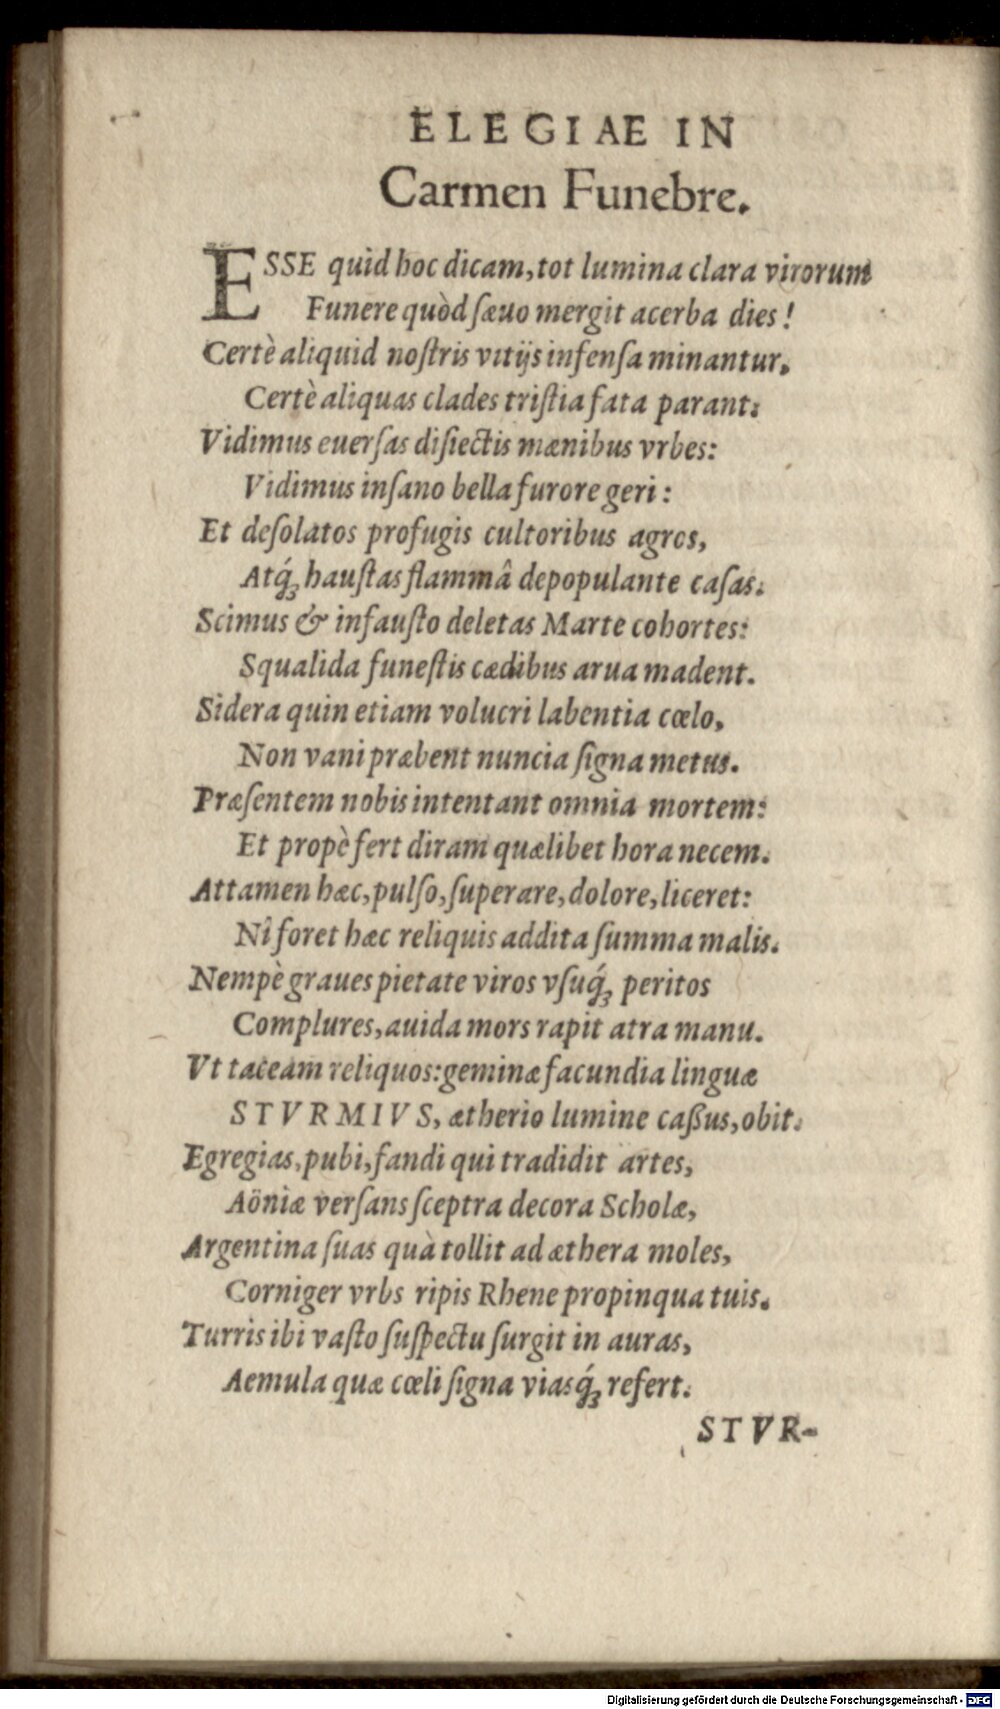 ELEGIAE IN
Carmen Funebre.
ESSE quid hoc dicam, tot lumina clara virorum
Funere quòd ſæuo mergit acerba dies!
Certè aliquid noſtris vitijs infenſa minantur,
Certè aliquas clades triſtia fata parant:
Vidimus euerſas diſiectis mænibus vrbes:
Vidimus inſano bella furore geri:
Et deſolatos profugis cultoribus agros,
Atq́; hauſtas flammâ depopulante caſas.
Scimus & infauſto deletas Marte cohortes:
Squalida funeſtis cædibus arua madent.
Sidera quin etiam volucri labentia cœlo,
Non vani præbent nuncia ſigna metus.
Præſentem nobis intentant omnia mortem:
Et propè fert diram quælibet hora necem.
Attamen hæc, pulſo, ſuperare, dolore, liceret:
Nî foret hæc reliquis addita ſumma malis.
Nempè graues pietate viros vſuq́; peritos
Complures, auida mors rapit atra manu.
Vt taceam reliquos: geminæ facundia linguæ
STVRMIVS, ætherio lumine caßus, obit.
Egregias, pubi, fandi qui tradidit artes,
Aöniæ verſans ſceptra decora Scholæ,
Argentina ſuas quà tollit ad æthera moles,
Corniger vrbs ripis Rhene propinqua tuis.
Turris ibi vaſto ſuſpectu ſurgit in auras,
Aemula quæ cœli ſigna viasq́; refert.
STVR-
Digitalisierung gefördert durch die Deutsche Forschungsgemeinschaft - DFG